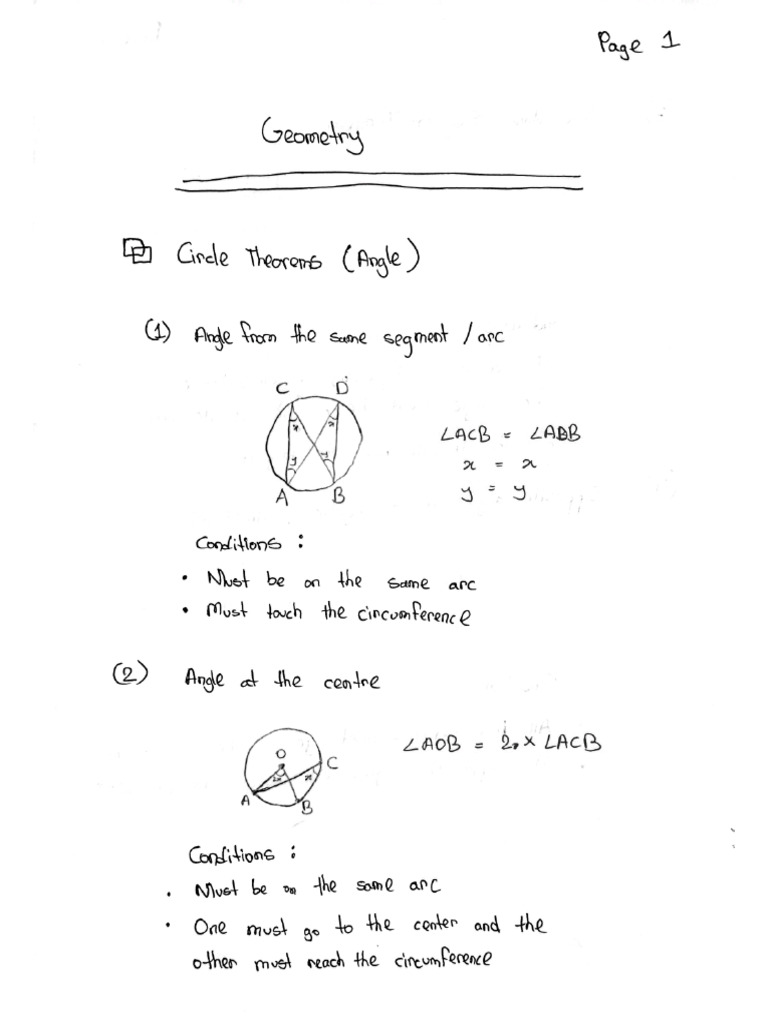 Page 1
Geometry
Circle Theorems (Angle)
(1) Angle from the same segment / arc
C D
x x
y y
A B
∠ACB = ∠ADB
x = x
y = y
Conditions :
• Must be on the same arc
• Must touch the circumference
(2) Angle at the centre
∠AOB = 2 × ∠ACB
O
C
2x x
A
B
Conditions :
• Must be on the same arc
• One must go to the center and the
other must reach the circumference